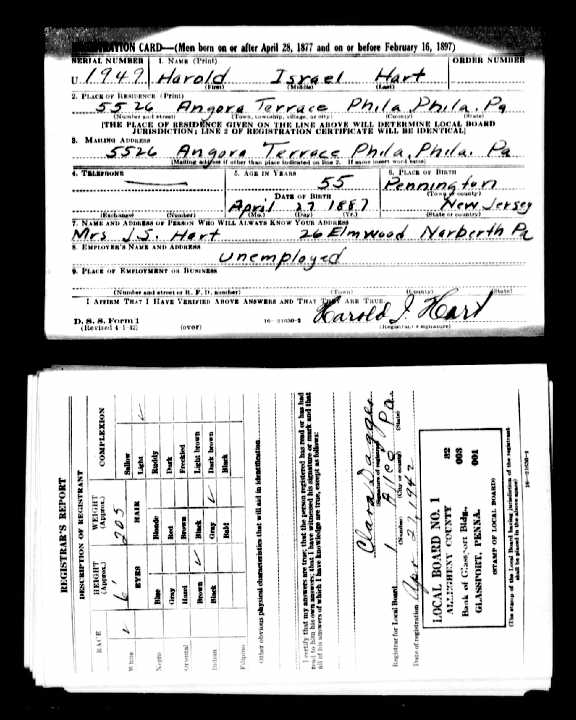 REGISTRATION CARD—(Men born on or after April 28, 1877 and on or before February 16, 1897)
SERIAL NUMBER 1. NAME (Print) ORDER NUMBER
U 1949 Harold Israel Hart
(First) (Middle) (Last)
2. PLACE OF RESIDENCE (Print)
5526 Angora Terrace Phila. Phila. Pa
(Number and street) (Town, township, village, or city) (County) (State)
[THE PLACE OF RESIDENCE GIVEN ON THE LINE ABOVE WILL DETERMINE LOCAL BOARD
JURISDICTION; LINE 2 OF REGISTRATION CERTIFICATE WILL BE IDENTICAL]
3. MAILING ADDRESS
5526 Angora Terrace Phila, Phila. Pa
(Mailing address if other than place indicated on line 2. If same insert word same)
4. TELEPHONE 5. AGE IN YEARS 6. PLACE OF BIRTH
55 Pennington
DATE OF BIRTH (Town or county)
April 27 1887 New Jersey
(Exchange) (Number) (Mo.) (Day) (Yr.) (State or country)
7. NAME AND ADDRESS OF PERSON WHO WILL ALWAYS KNOW YOUR ADDRESS
Mrs J.S. Hart 26 Elmwood Narberth Pa
8. EMPLOYER'S NAME AND ADDRESS
unemployed
9. PLACE OF EMPLOYMENT OR BUSINESS
(Number and street or R. F. D. number) (Town) (County) (State)
I AFFIRM THAT I HAVE VERIFIED ABOVE ANSWERS AND THAT THEY ARE TRUE.
Harold I. Hart
D. S. S. Form 1
(Revised 4-1-42) (over) 16—21630-2 (Registrant's signature)
REGISTRAR'S REPORT
DESCRIPTION OF REGISTRANT
RACE HEIGHT (Approx.) WEIGHT (Approx.) COMPLEXION
6' 205
White EYES HAIR Sallow
Light
Negro Blue Blonde Ruddy
Gray Red Dark
Oriental Hazel Brown Freckled
Brown Black Light brown
Indian Black Gray Dark brown
Bald Black
Filipino
Other obvious physical characteristics that will aid in identification
I certify that my answers are true; that the person registered has read or has had
read to him his own answers; that I have witnessed his signature or mark and that
all of his answers of which I have knowledge are true, except as follows:
Clara
(Signature of registrar)
Registrar for Local Board 1 Pa.
(Number) (City or county) (State)
Date of registration Apr 27, 1942
LOCAL BOARD NO. 1 82
ALLEGHENY COUNTY 003
Bank of Glassport Bldg. 001
GLASSPORT, PENNA.
(STAMP OF LOCAL BOARD)
(The stamp of the Local Board having jurisdiction of the registrant
shall be placed in the above space)
16—21630-2